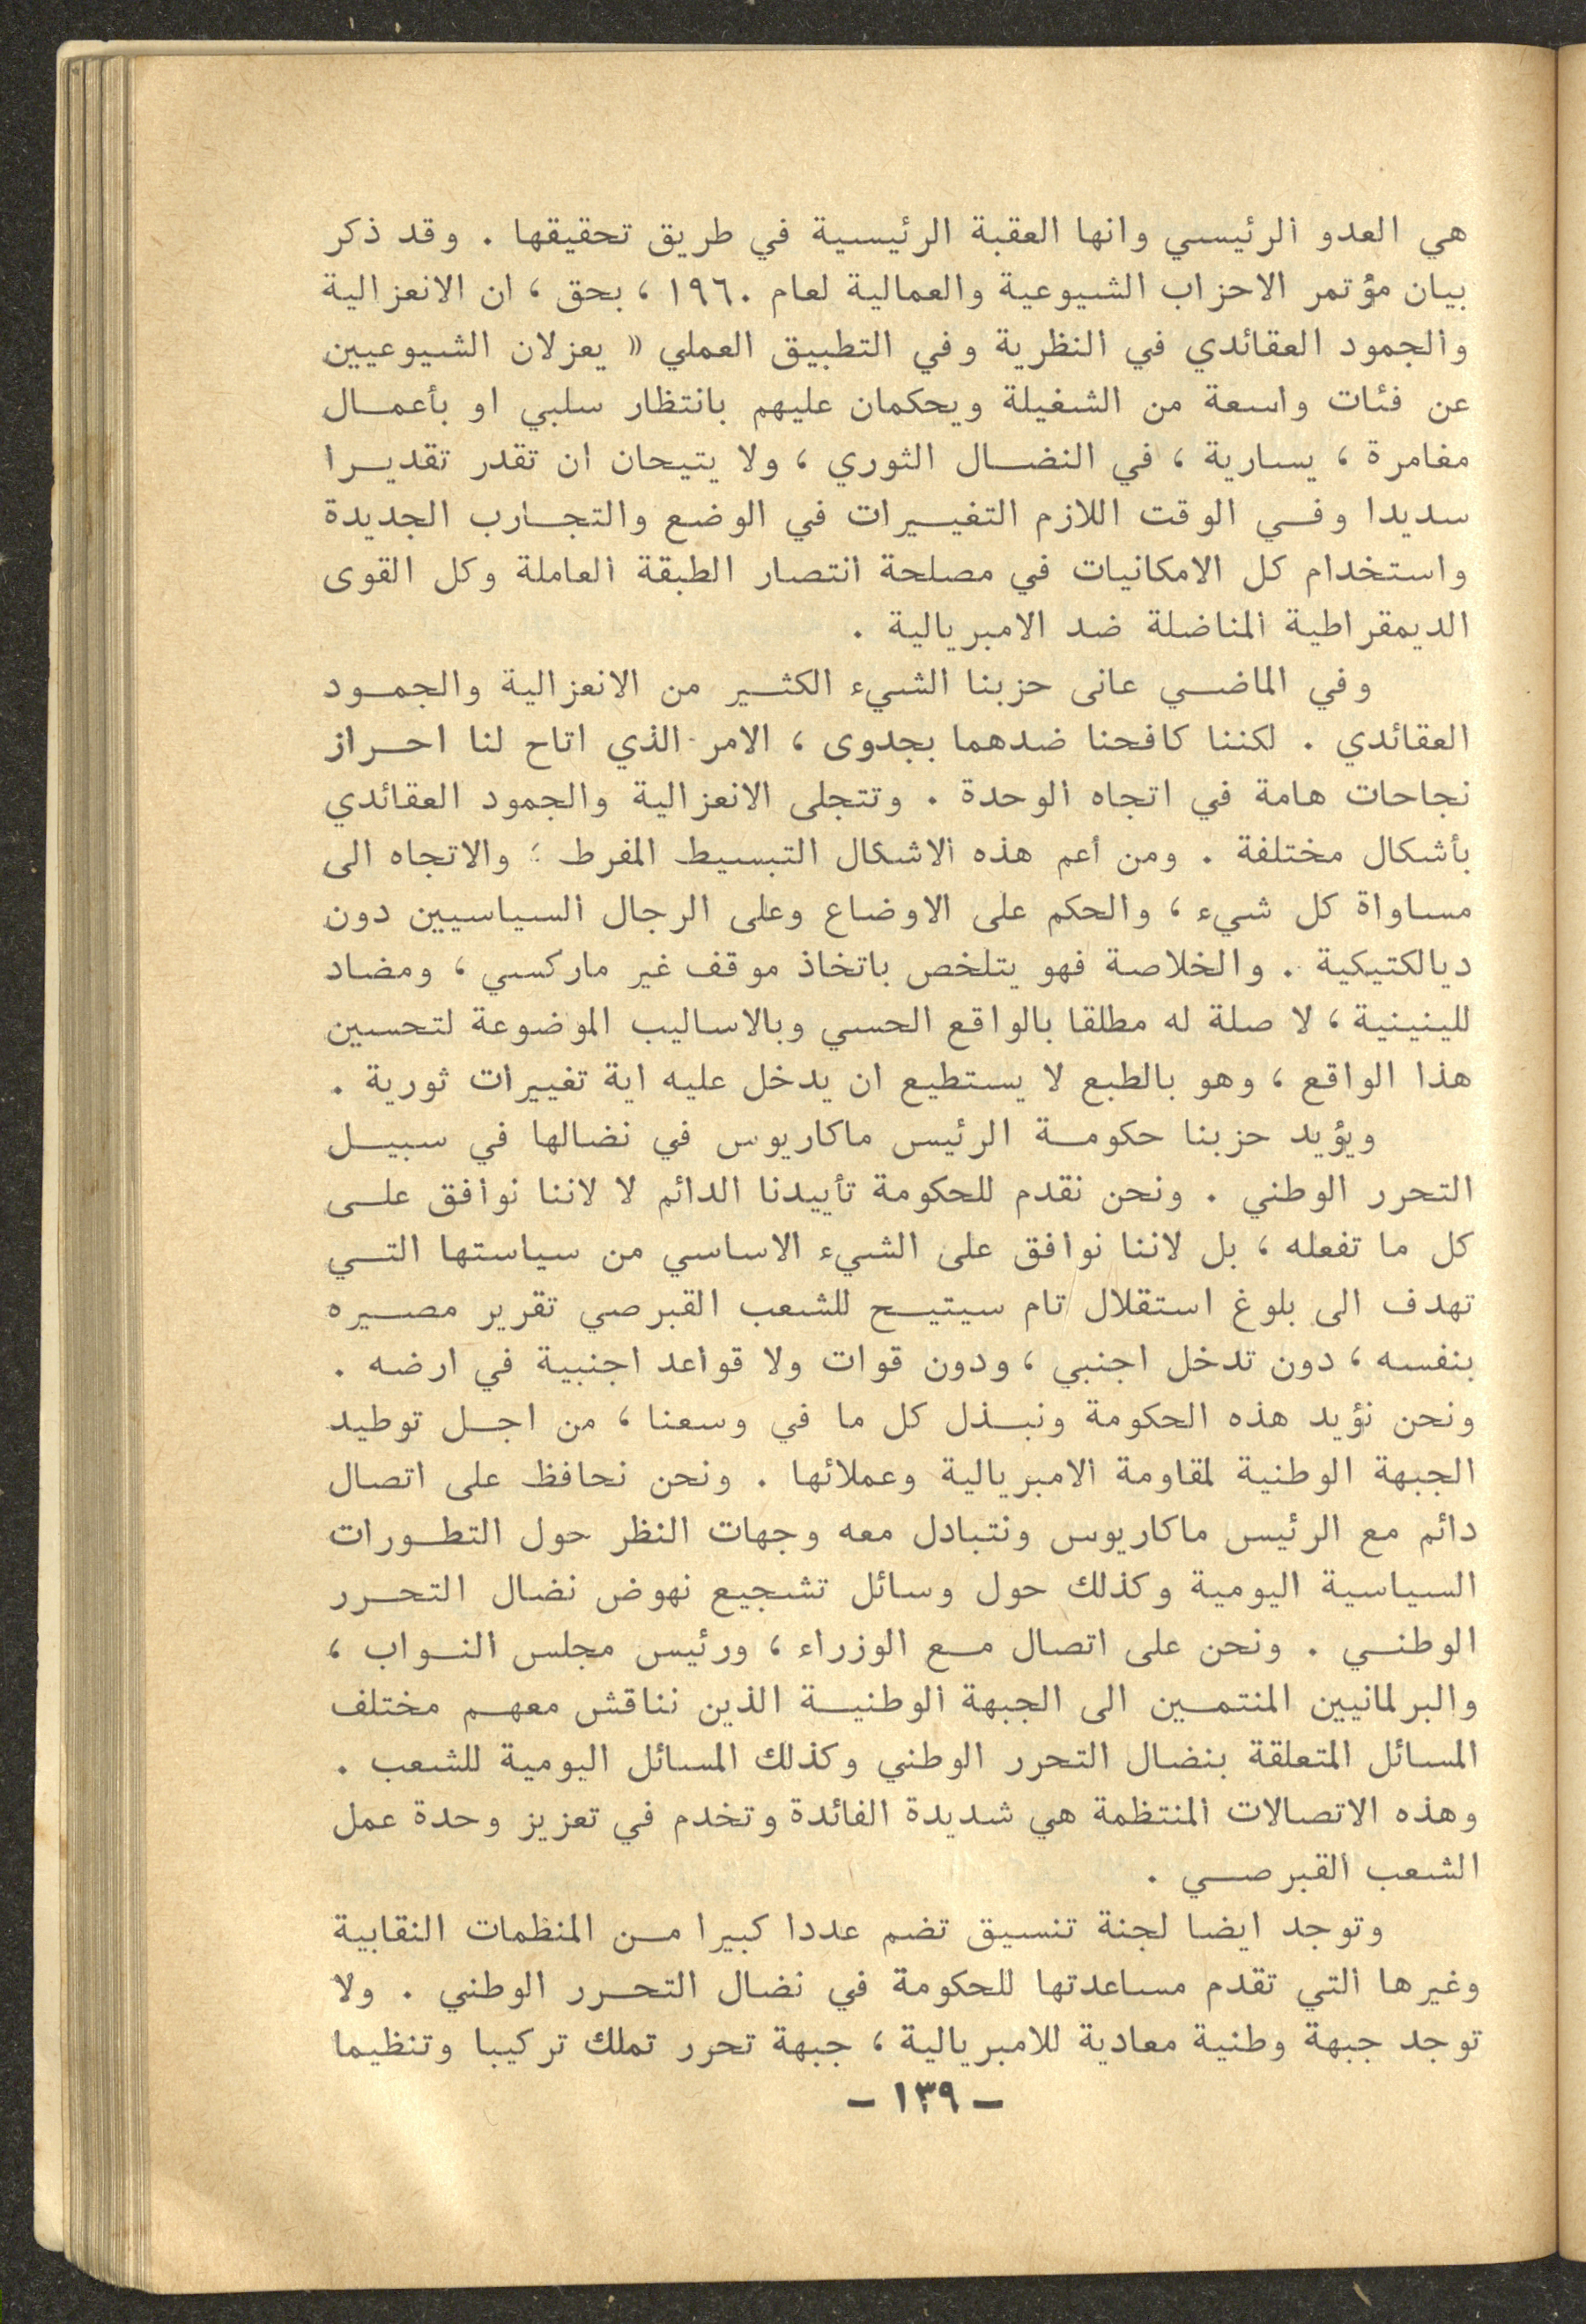 هي العدو الرئيسي وانها العقبة الرئيسية في طريق تحقيقها . وقد ذكر
بيان مؤتمر الاحزاب الشيوعية والعمالية لعام ١٩٦٠ ، بحق ، ان الانعزالية
والجمود العقائدي في النظرية وفي التطبيق العملي « يعزلان الشيوعيين
عن فئات واسعة من الشغيلة ويحكمان عليهم بانتظار سلبي او بأعمال
مغامرة ، يسارية ، في النضال الثوري ، ولا يتيحان ان تقدر تقديرا
سديدا وفي الوقت اللازم التغييرات في الوضع والتجارب الجديدة
واستخدام كل الامكانيات في مصلحة انتصار الطبقة العاملة وكل القوى
الديمقراطية المناضلة ضد الامبريالية .
وفي الماضي عانى حزبنا الشيء الكثير من الانعزالية والجمود
العقائدي . لكننا كافحنا ضدهما بجدوى ، الامر الذي اتاح لنا احراز
نجاحات هامة في اتجاه الوحدة . وتتجلى الانعزالية والجمود العقائدي
بأشكال مختلفة . ومن أعم هذه الاشكال التبسيط المفرط ؛ والاتجاه الى
مساواة كل شيء ، والحكم على الاوضاع وعلى الرجال السياسيين دون
ديالكتيكية . والخلاصة فهو يتلخص باتخاذ موقف غير ماركسي ، ومضاد
للينينية ، لا صلة له مطلقا بالواقع الحسي وبالاساليب الموضوعة لتحسين
هذا الواقع ، وهو بالطبع لا يستطيع ان يدخل عليه اية تغييرات ثورية .
ويؤيد حزبنا حكومة الرئيس ماكاريوس في نضالها في سبيل
التحرر الوطني . ونحن نقدم للحكومة تأييدنا الدائم لا لاننا نوافق على
كل ما تفعله ، بل لاننا نوافق على الشيء الاساسي من سياستها التي
تهدف الى بلوغ استقلال تام سيتيح للشعب القبرصي تقرير مصيره
بنفسه ، دون تدخل اجنبي ، ودون قوات ولا قواعد اجنبية في ارضه .
ونحن نؤيد هذه الحكومة ونبذل كل ما في وسعنا ، من اجل توطيد
الجبهة الوطنية لمقاومة الامبريالية وعملائها . ونحن نحافظ على اتصال
دائم مع الرئيس ماكاريوس ونتبادل معه وجهات النظر حول التطورات
السياسية اليومية وكذلك حول وسائل تشجيع نهوض نضال التحرر
الوطني . ونحن على اتصال مع الوزراء ، ورئيس مجلس النواب ،
والبرلمانيين المنتمين الى الجبهة الوطنية الذين نناقش معهم مختلف
المسائل المتعلقة بنضال التحرر الوطني وكذلك المسائل اليومية للشعب .
وهذه الاتصالات المنتظمة هي شديدة الفائدة وتخدم في تعزيز وحدة عمل
الشعب القبرصي .
وتوجد ايضا لجنة تنسيق تضم عددا كبيرا من المنظمات النقابية
وغيرها التي تقدم مساعدتها للحكومة في نضال التحرر الوطني . ولا
توجد جبهة وطنية معادية للامبريالية ، جبهة تحرر تملك تركيبا وتنظيما
– ١٣٩ –